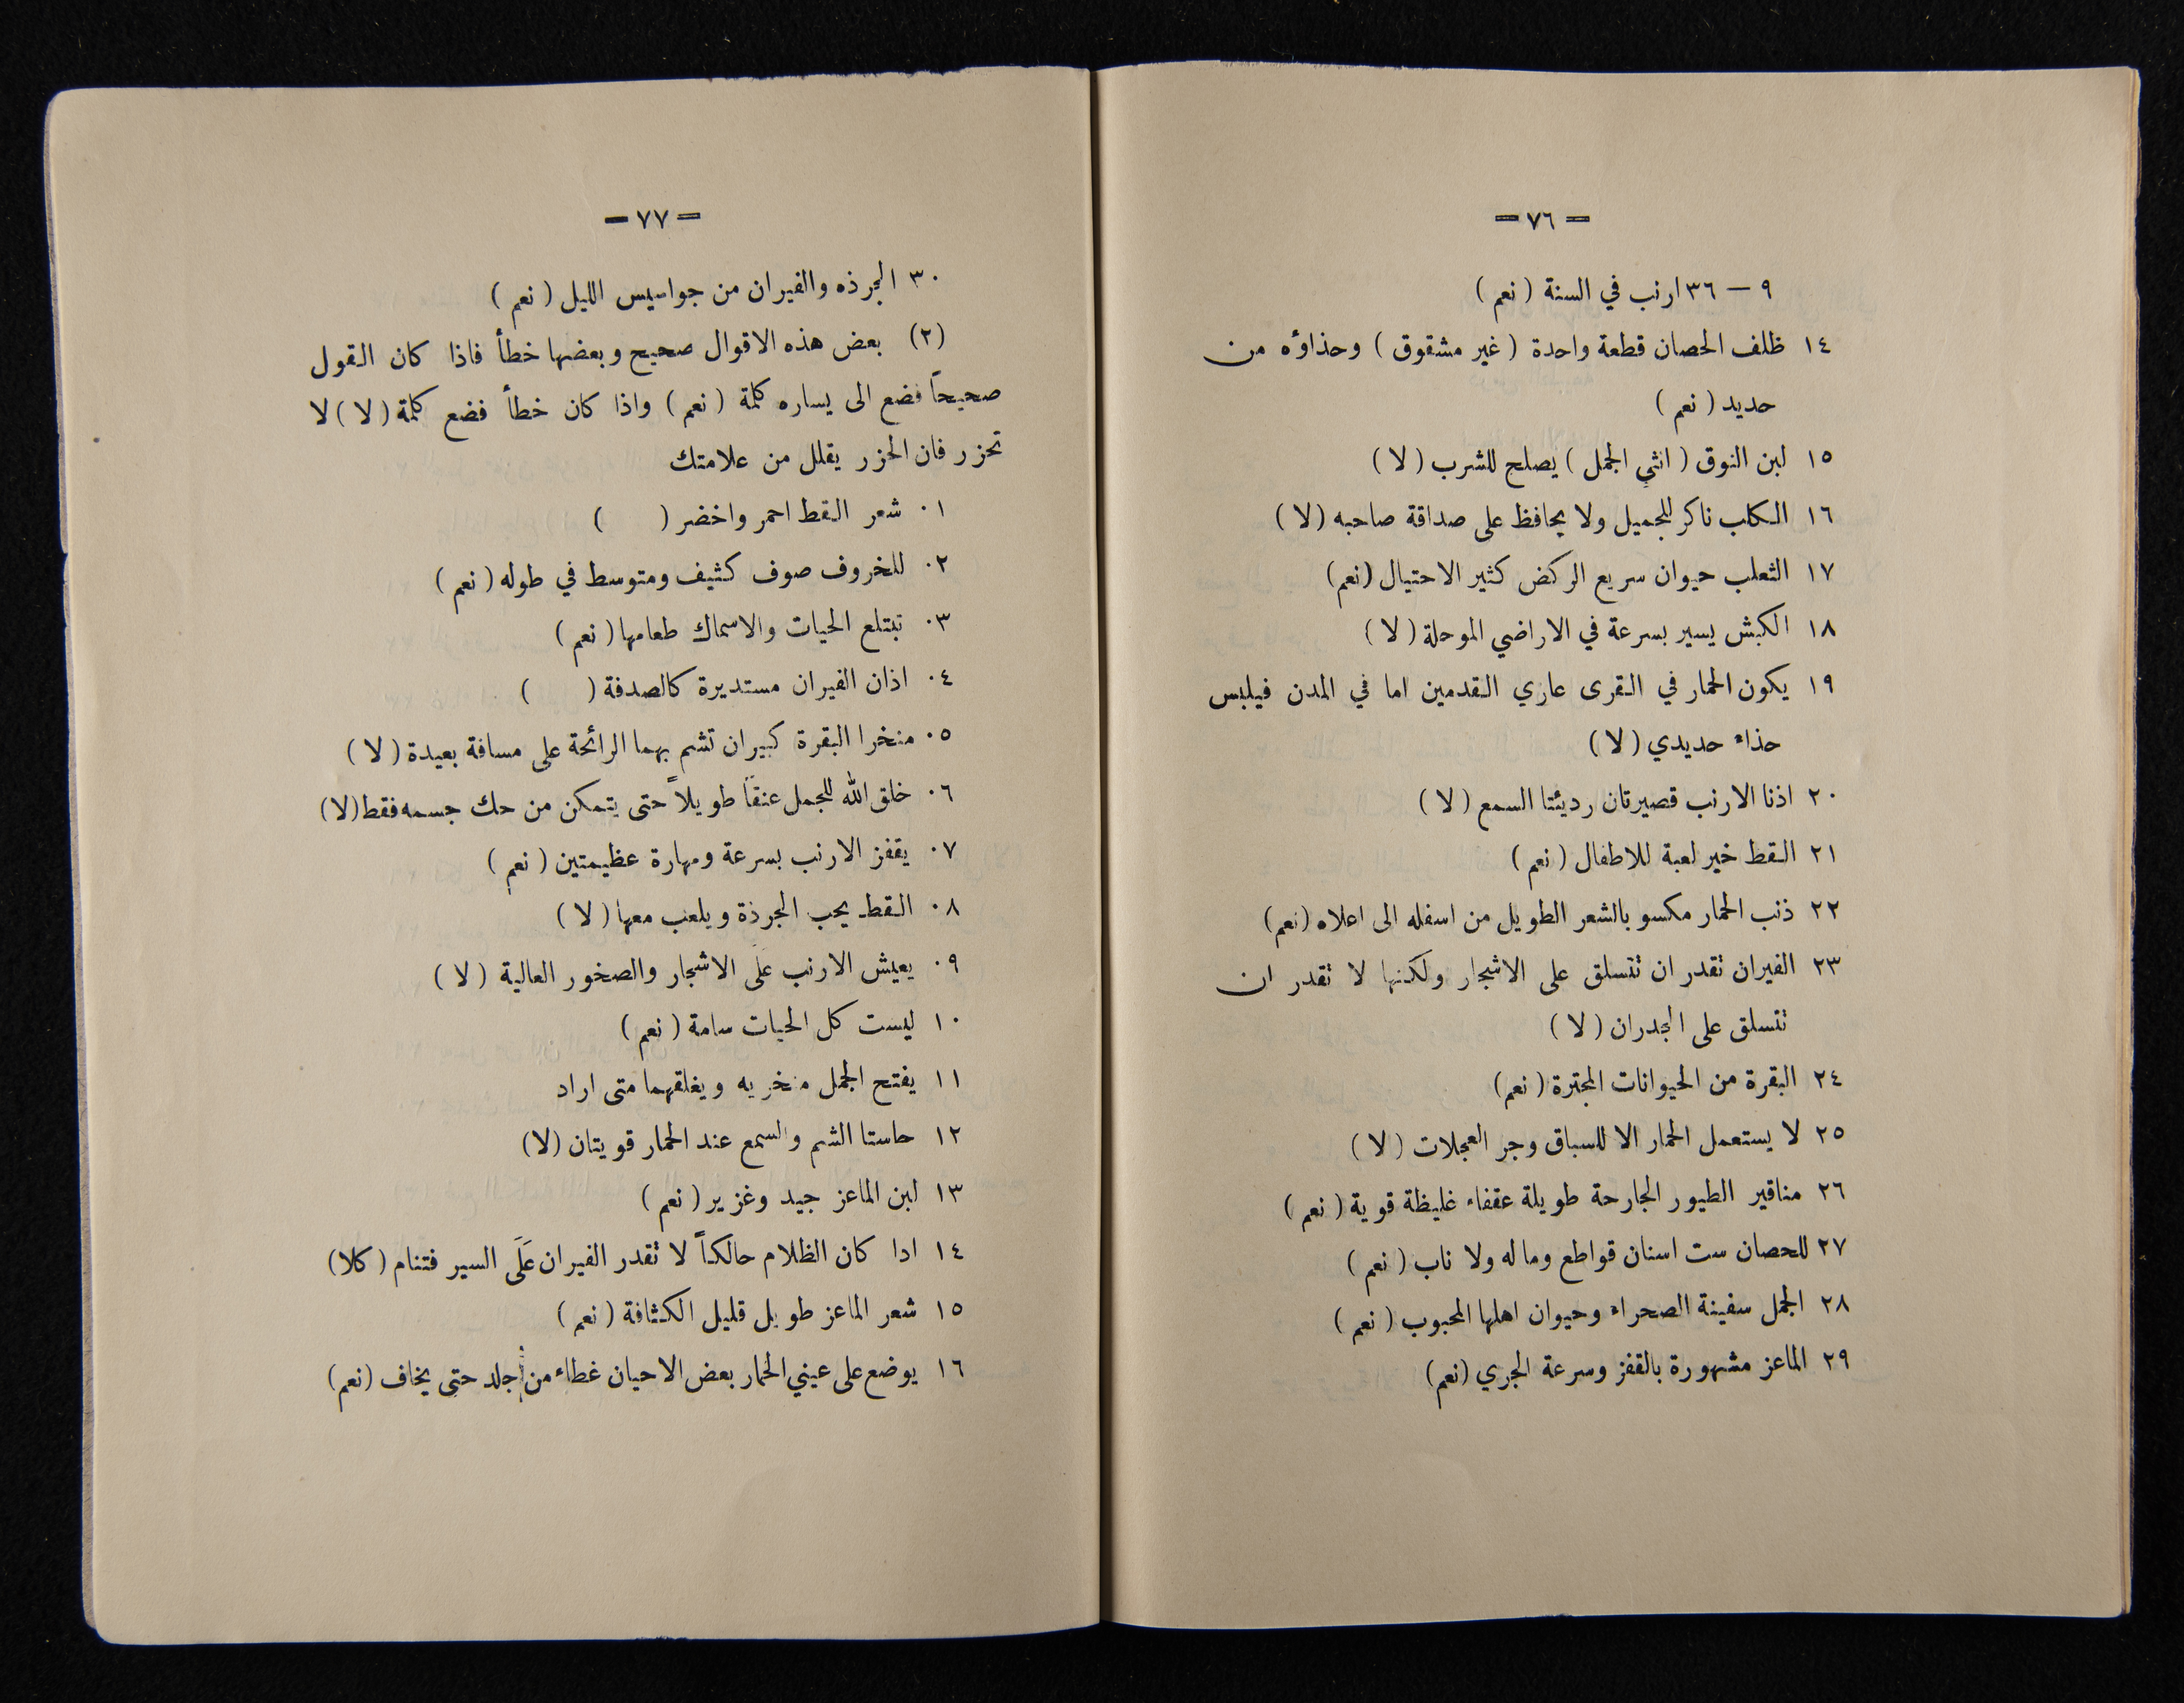 = ٧٦ =
٩ — ٣٦ ارنب في السنة ( نعم )
١٤ ظلف الحصان قطعة واحدة ( غير مشقوق ) وحذاؤه من
حديد ( نعم )
١٥ لبن النوق ( انثى الجمل ) يصلح للشرب ( لا )
١٦ الكلب ناكر للجميل ولا يحافظ على صداقة صاحبه ( لا )
١٧ الثعلب حيوان سريع الركض كثير الاحتيال ( نعم )
١٨ الكبش يسير بسرعة في الاراضي الموحلة ( لا )
١٩ يكون الحمار في القرى عاري القدمين اما في المدن فيلبس
حذاء حديدي ( لا )
٢٠ اذنا الارنب قصيرتان رديئتا السمع ( لا )
٢١ القط خير لعبة للاطفال ( نعم )
٢٢ ذنب الحمار مكسو بالشعر الطويل من اسفله الى اعلاه ( نعم )
٢٣ الفيران تقدر ان تتسلق على الاشجار ولكنها لا تقدر ان
تتسلق على الجدران ( لا )
٢٤ البقرة من الحيوانات المجترة ( نعم )
٢٥ لا يستعمل الحمار الا للسباق وجر العجلات ( لا )
٢٦ مناقير الطيور الجارحة طويلة عقفاء غليظة قوية ( نعم )
٢٧ للحصان ست اسنان قواطع وما له ولا ناب ( نعم )
٢٨ الجمل سفينة الصحراء وحيوان اهلها المحبوب ( نعم )
٢٩ الماعز مشهورة بالقفز وسرعة الجري ( نعم )
= ٧٧ =
٣٠ الجرذه والفيران من جواسيس الليل ( نعم )
(٢) بعض هذه الاقوال صحيح وبعضها خطأ فاذا كان القول
صحيحاً فضع الى يساره كلمة ( نعم ) واذا كان خطأ فضع كلمة ( لا ) لا
تحزر فان الحزر يقلل من علامتك
٠١ شعر القط احمر واخضر ( )
٠٢ للخروف صوف كثيف ومتوسط في طوله ( نعم )
٠٣ تبتلع الحيات والاسماك طعامها ( نعم )
٠٤ اذان الفيران مستديرة كالصدفة ( )
٠٥ منخرا البقرة كبيران تشم بهما الرائحة على مسافة بعيدة ( لا )
٠٦ خلق الله للجمل عنقاً طويلاً حتى يتمكن من حك جسمه فقط ( لا )
٠٧ يقفز الارنب بسرعة ومهارة عظيمتين ( نعم )
٠٨ القط يحب الجرذة ويلعب معها ( لا )
٠٩ يعيش الارنب عَلَى الاشجار والصخور العالية ( لا )
١٠ ليست كل الحيات سامة ( نعم )
١١ يفتح الجمل منخريه ويغلقهما متى اراد
١٢ حاستا الشم والسمع عند الحمار قويتان ( لا )
١٣ لبن الماعز جيد وغزير ( نعم )
١٤ اذا كان الظلام حالكاً لا تقدر الفيران عَلَى السير فتنام ( كلا )
١٥ شعر الماعز طويل قليل الكثافة ( نعم )
١٦ يوضع على عيني الحمار بعض الاحيان غطاء من جلد حتى يخاف ( نعم )